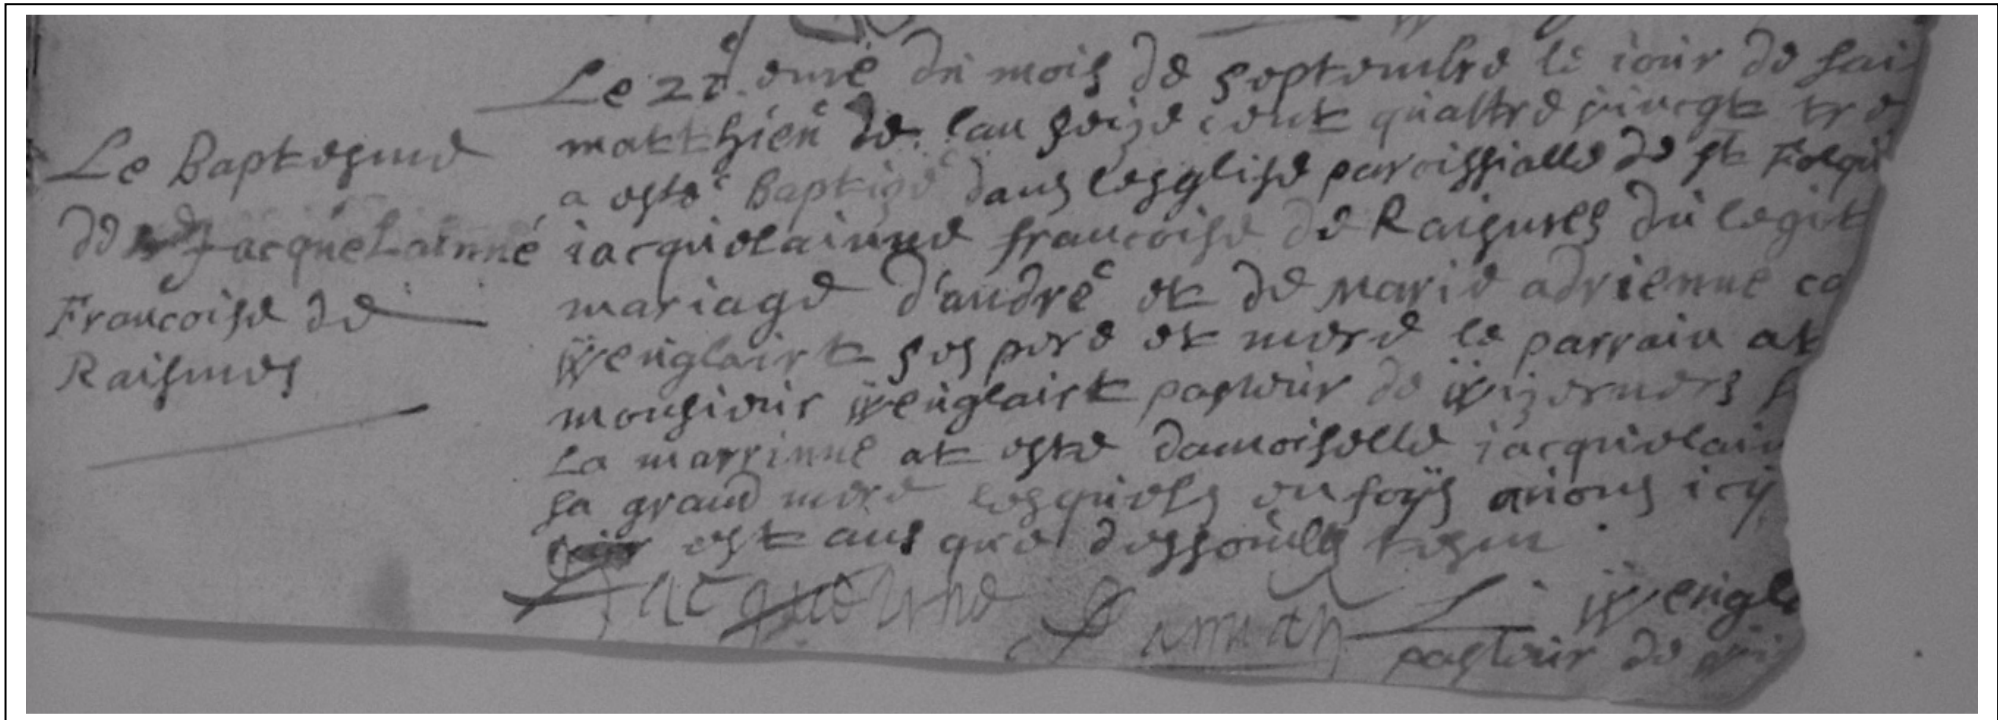 Le Baptesme
de Jacquelainne
Francoise de
Raismes
Le 21e du mois de septembre le iour de sai
matthieu de lan seize cent quattre vincgt tre
a esté Baptizé dans lesglise paroissialle de st Folqui
iacquelainne francoise de Raismes du legit
mariage d'andré et de Marie adrienne co
Wenglairt ses pere et mere le parrain at
monsieur Wenglairt pasteur de Wizernes
La marrinne at este damoiselle iacquelain
sa grand mere lesquels en foÿ avons icÿ
est ans que dessoubs
Jacqueline
Wengl
pasteur de wi